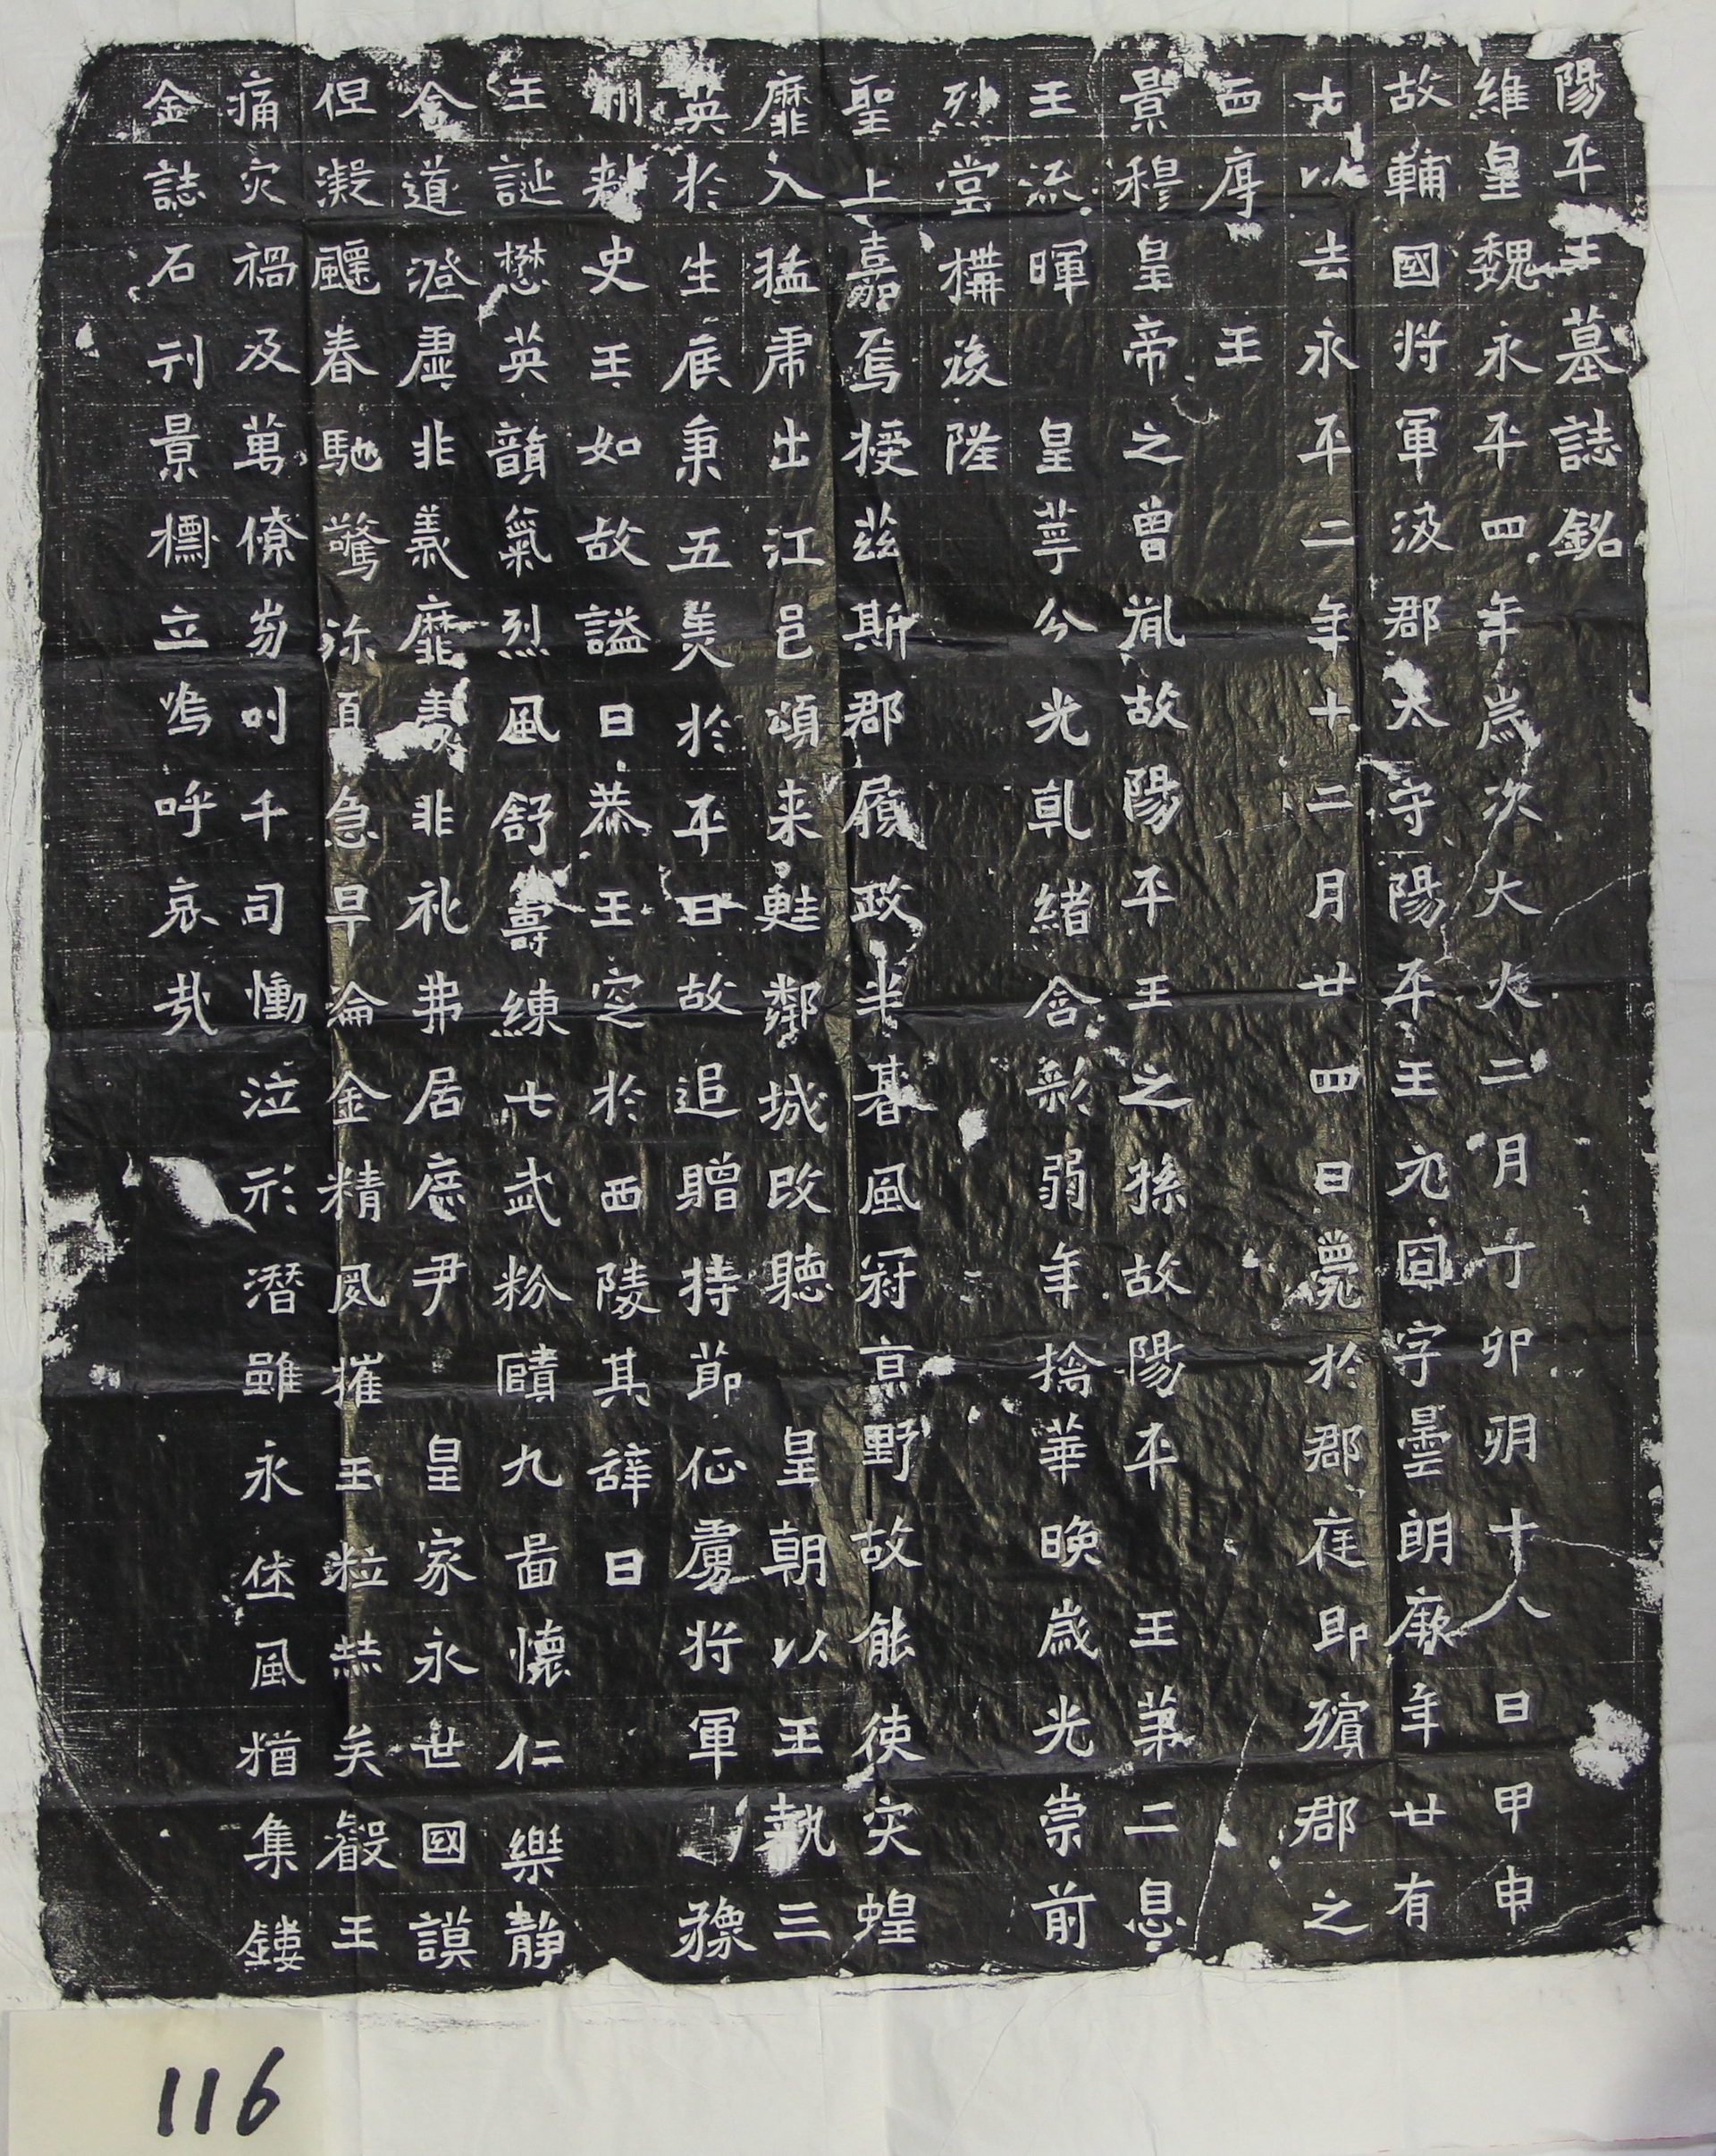 陽平王墓誌銘
維皇魏永平四年歲次大火二月丁卯朔十八日甲申
故輔國將軍汲郡太守陽平王元冏字曇朗厥年廿有
七以去永平二年十二月廿四日薨於郡庭即殯郡之
西序 王
景穆皇帝之曾胤故陽平王之孫故陽平 王第二息
王流暉 皇萼分光乹緒含彩弱年擒華晚歲光崇前
烈堂構後陞
聖上嘉焉授茲斯郡履政半朞風冠京野故能使突蝗
靡入猛虎出江邑頌来甦鄰城改聽 皇朝以王執三
英於生底秉五美於平日故 追贈持節征虜將軍 豫
州刾史王如故謚曰恭王窆於西陵其辭曰
王誕懋英韻氣烈風舒籌練七武粉賾九啚懷仁樂静
含道澄虛非義靡 非礼弗居庶尹 皇家永世國謨
但凝 春馳驚弥 急早淪金精夙摧玉粒 矣叡王
痛灾禍及萬僚 叫千司慟泣形潜雖永 風猶集鏤
金誌石刊景檦立嗚呼哀哉
116